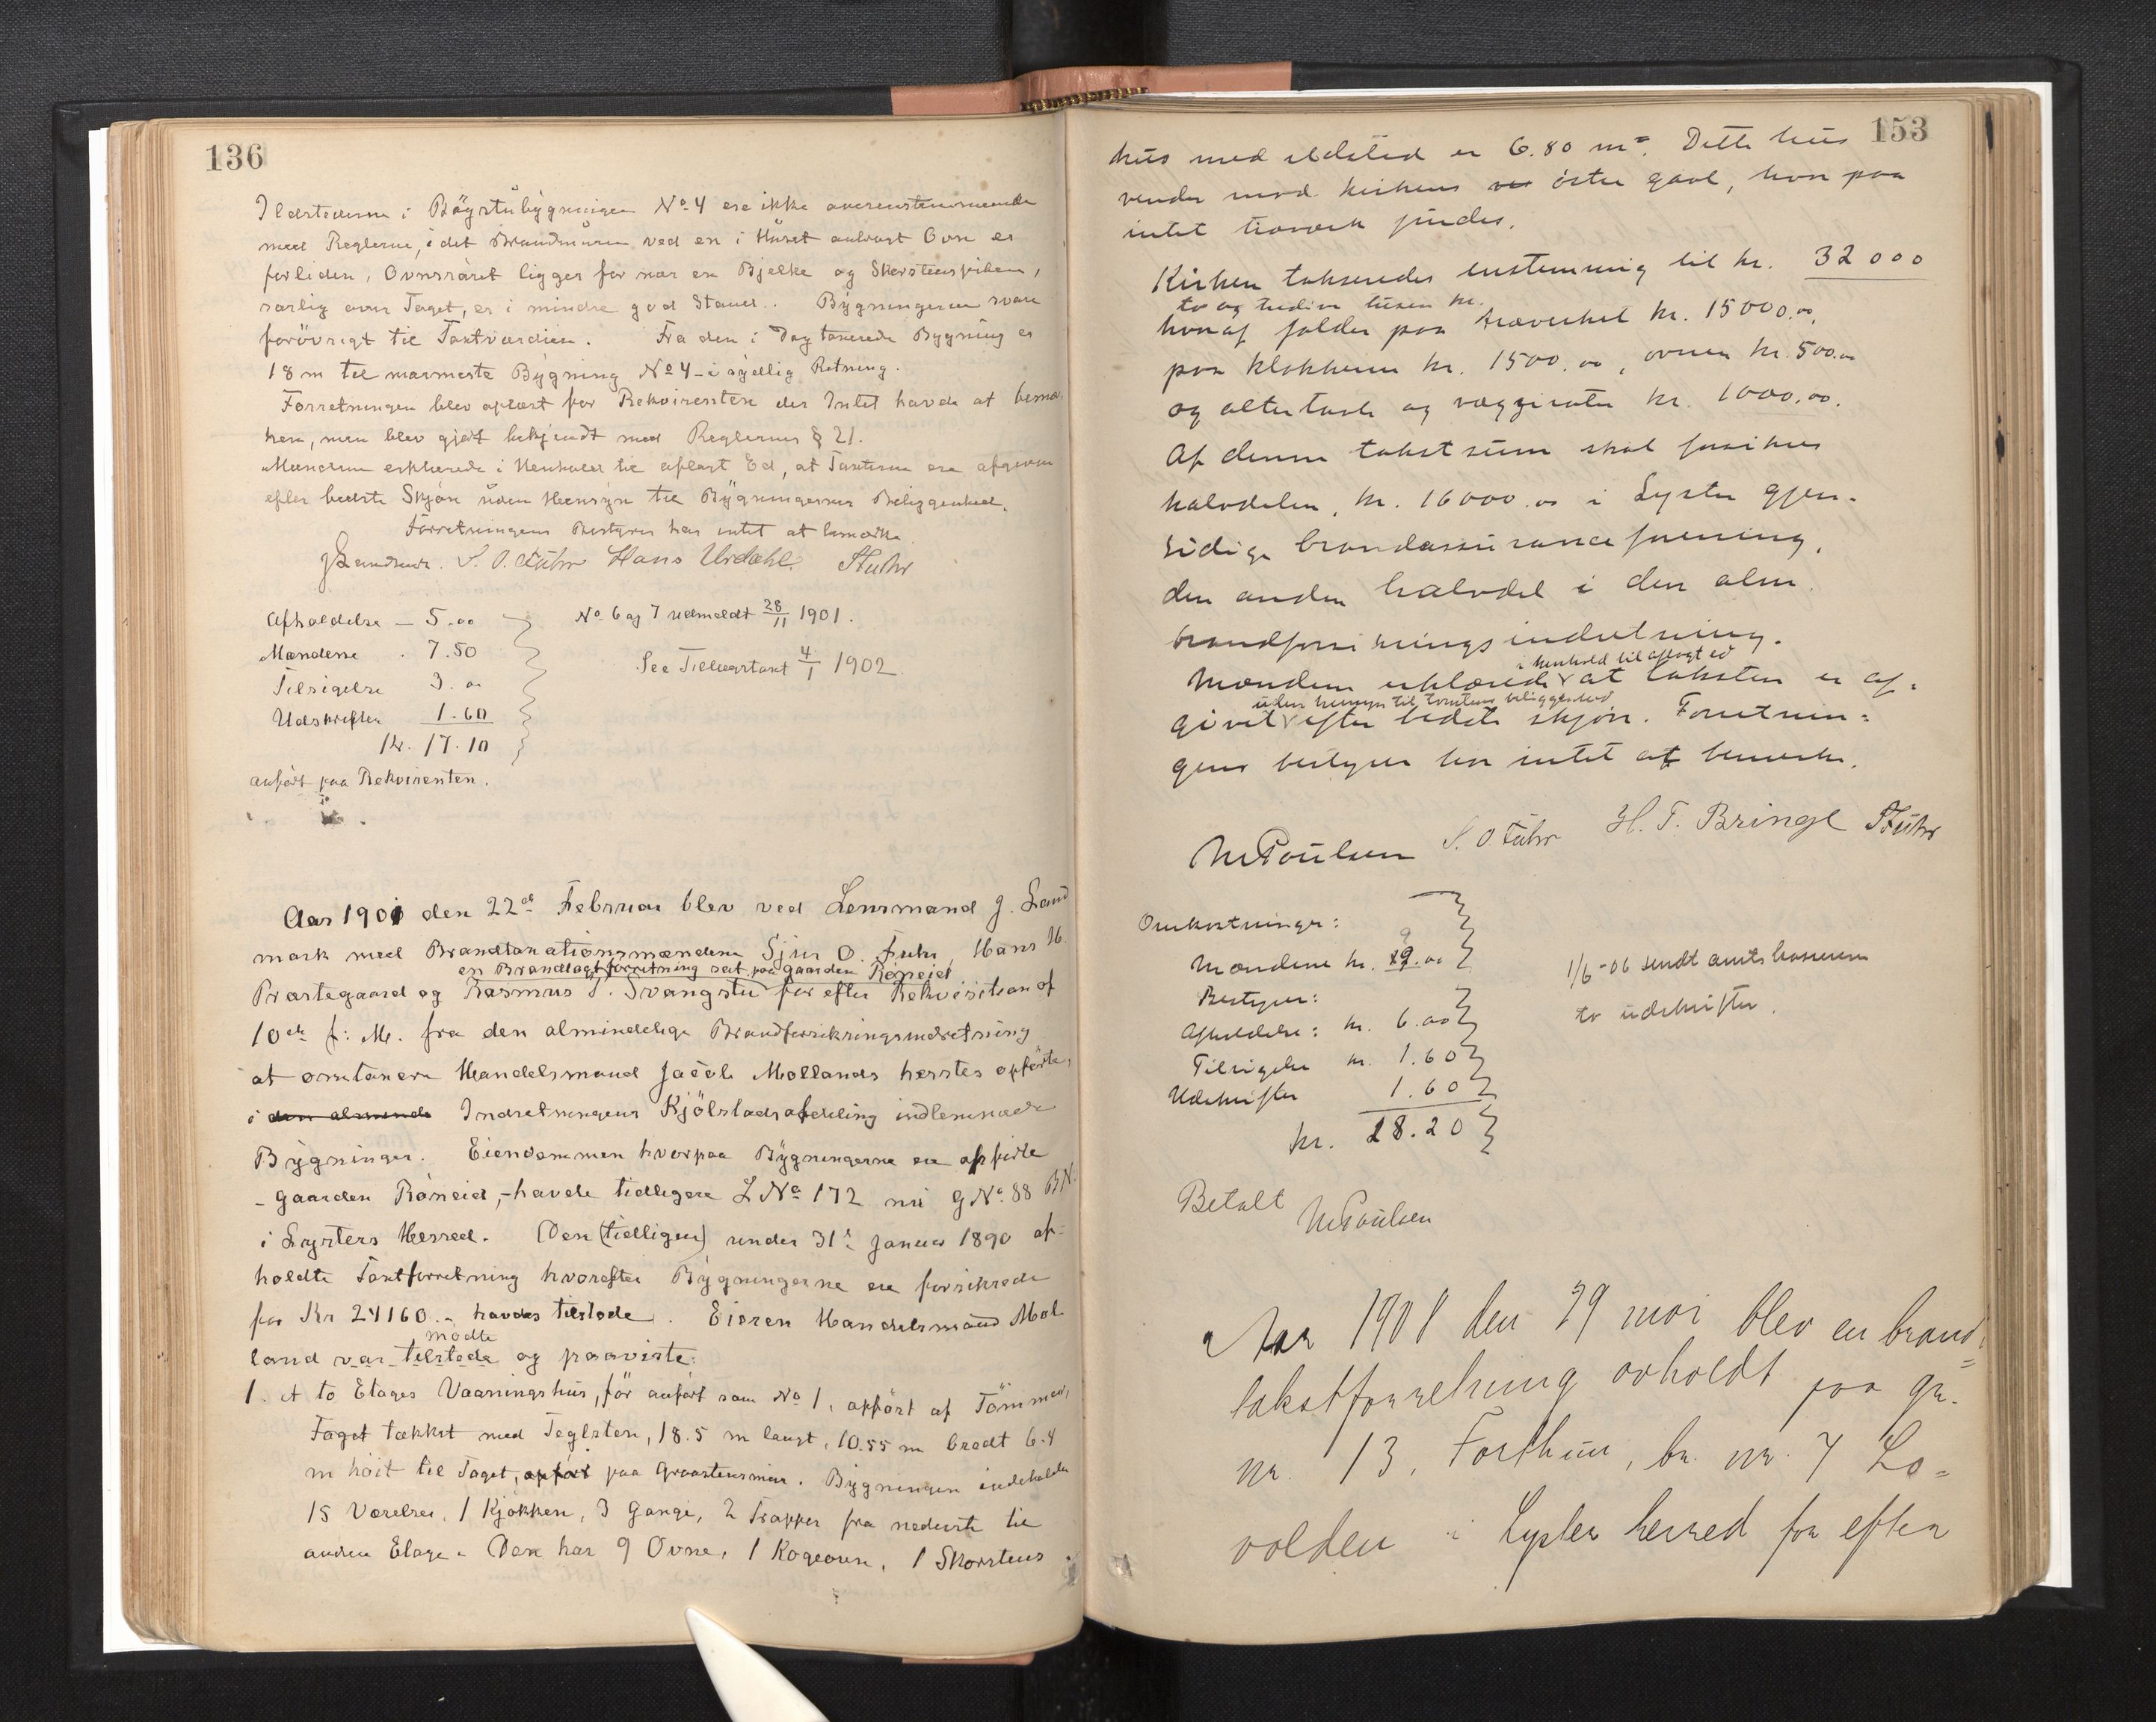 136
Ildstederne i Bøgstubygningen No 4 ere ikke overenstemmende
med Reglerne, idet Brandmuren ved en i Huset anbragt Ovn er
forliden, Ovnsrøret ligger for nær en Bjelke og Skorstenspiben,
særlig over Taget, er i mindre god Stand. Bygningerne svare
forøvrigt til Taxtværdien. Fra den i Dag taxerede Bygning er
18 m til nærmeste Bygning No 4 i sydlig Retning.
Forretningen blev oplæst for Rekvirenten der Intet havde at bemær
ken, men blev gjort bekjendt med Reglernes § 21.
Mændene erklærede i Henhold til aflagt Ed, at Taxterne ere afgivne
efter bedste Skjøn uden Hensyn til Bygningernes Beliggenhed.
Forretningens Bestyrer har intet at bemærke.
S. O. Fuhr Hans Urdahl. SFuhr
Afholdelse — 5.00
Mændene . 7.50
Tilsigelse 3.00
Udskrifter 1.60
Kr. 17.10
anført paa Rekvirenten.
No 6 og 7 udmeldt 28/11 1901.
See Tillægstaxt 4/1 1902.
Aar 1901 den 22de Februar blev ved Lensmand J. Land
mark med Brandtaxationsmændene Sjur O. Fuhr, Hans U.
en Brandtaxtforretning sat paa Gaarden Røneid
Præstegaard og Rasmus T. Svangstu for efter Rekvisition af
10de f: M. fra den almindelige Brandforsikringsindretning
at omtaxere Handelsmand Jacob Mollands herstes opførte,
i den alminde Indretningens Kjøbstadsafdeling indlemmede
Bygninger. Eiendommen hvorpaa Bygningerne ere opførte
- Gaarden Røneid, - havde tidligere L No 172 nu G No 88 BN.
i Lysters Herred. Den (tidligere) under 31te Januar 1890 af-
holdte Taxtforretning hvorefter Bygningerne ere forsikrede
for Kr 24160.- havdes tilstede. Eieren Handelsmand Mol
mødte
land var tilstede og paaviste:
1. et to Etages Vaaningshus, før anført som No 1, opført af Tømmer,
Taget tækket med Teglsten, 18.5 m langt, 10.55 m bredt 6.4
m høit til Taget, opført paa Graastensmur. Bygningen indeholder
15 Værelser, 1 Kjøkken, 3 Gange, 2 Trapper fra nederste til
anden Etage. Den har 9 Ovne, 1 Kogeovn, 1 Skorstens
153
hus med ildsted er 6.80 m². Dette hus
vender mod kirkens øster gavl, hvor paa
intet træværk findes.
Kirken takseredes enstemmig til kr. 32000
to og tredive tusen kr.
hvoraf falder paa træverket kr. 15000.00,
paa klokkerne kr. 1500.00, ovnen kr. 500.00
og altertavle og vægzirater kr. 1000.00.
Af denne takstsum skal forsikres
halvdelen, kr. 16000.00 i Lyster gjen-
sidige brandassuranceforening,
den anden halvdel i den alm.
brandforsikringsindretning.
i henhold til aflagt ed
Mændene erklærede at taksten er af-
uden hensyn til tomtens beliggenhed
givet efter bedste skjøn. Forretnin=
gens bestyrer har intet at bemerke.
MPoulsen S. O. Fuhr H. T. Bringe SFuhr
Omkostninger:
9
Mændene kr. 19.00
Bestyrer:
Afholdelse: kr. 6.00
Tilsigelse kr. 1.60
Udskrifter 1.60
kr. 18.20
1/6-06 sendt amtskasseren
to udskrifter.
Betalt MPoulsen
Aar 1901 den 29 mai blev en brand=
takstforretning avholdt paa gr.
nr. 13, Forthun, br. nr. 7 Lo=
volden i Lyster herred for efter